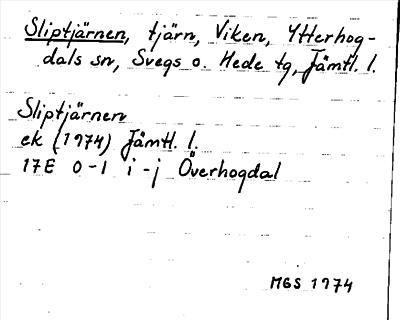 Sliptjärnen, tjärn, Viken, Ytterhog-
dals sn, Svegs o. Hede tg, Jämtl. l.
Sliptjärnen
ek (1974) Jämtl. l.
17E 0-1 i-j Överhogdal
MGS 1974